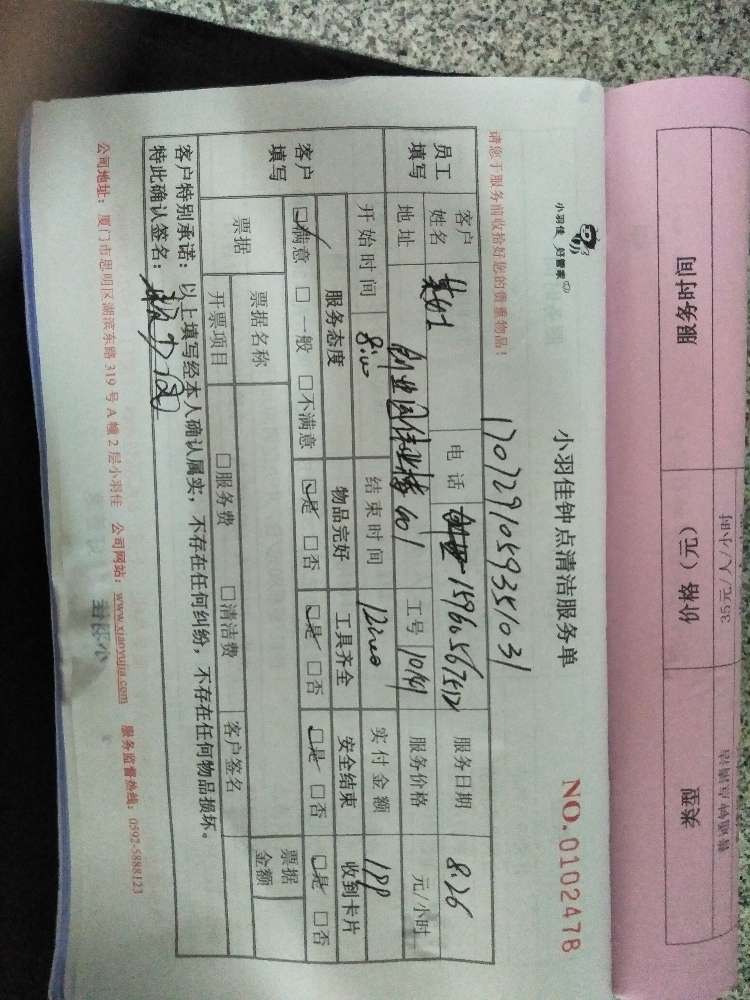 服务时间 价格（元） 类型
35元/人/小时
小羽佳 好管家
小羽佳钟点清洁服务单
NO. 0102478
请您于服务前收拾好您的贵重物品！
1707291059351031
员工填写
客户姓名 电话 15960567512 服务日期 8.26
地址 创业园伟业楼 401 工号 10141 服务价格 元/小时
开始时间 8:00 结束时间 12:00 实付金额
客户填写
服务态度 物品完好 工具齐全 安全结束 收到卡片
☑满意 □一般 □不满意 ☑是 □否 ☑是 □否 ☑是 □否 ☑是 □否
票据 票据名称 票据金额
开票项目 □服务费 □清洁费 客户签名
客户特别承诺：以上填写经本人确认属实，不存在任何纠纷，不存在任何物品损坏。
特此确认签名：
公司地址：厦门市思明区湖滨东路319号A幢2层小羽佳 公司网站：www.xiaoyujia.com 服务监督热线：0592-5888123